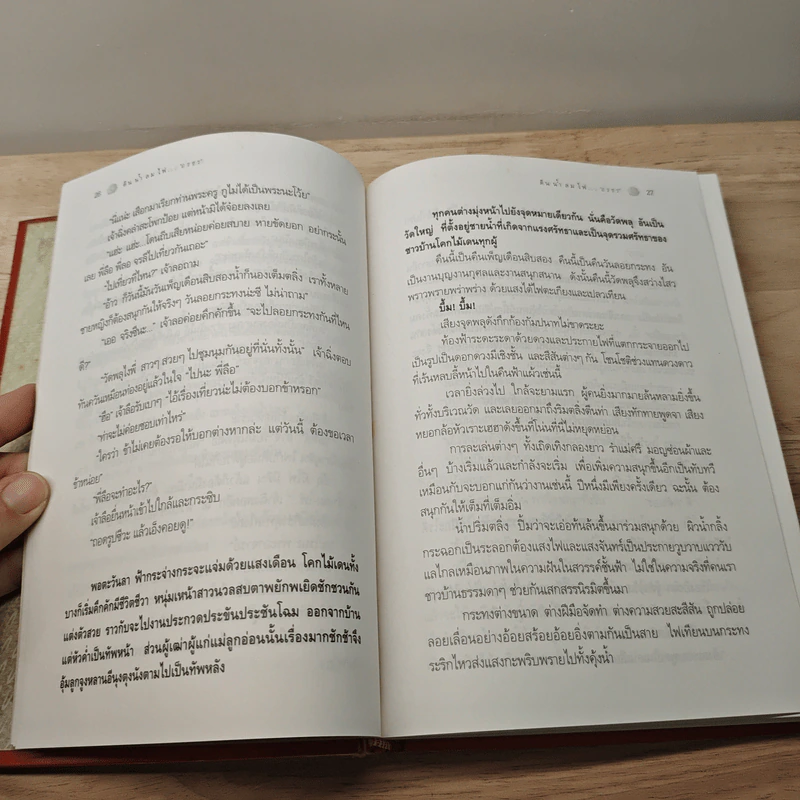 26 ดิน น้ำ ลม ไฟ
"นี่แน่ะ เสือกมาเรียกท่านพระครู กูไม่ได้เป็นพระนะโว้ย"
เจ้าฉิ่งคลำสะโพกป้อย แต่หน้ามิได้จ๋อยลงเลย
"แฮ่ะ แฮ่ะ โดนถีบเสียหน่อยค่อยสบาย หายขัดยอก อย่ากระนั้น
เลย พี่ลือ พี่ลอ จรลีไปเที่ยวกันเถอะ"
"ไปเที่ยวที่ไหน?" เจ้าลอถาม
"อ้าว ก็วันนี้มันวันเพ็ญเดือนสิบสองน้ำก็นองเต็มตลิ่ง เราทั้งหลาย
ชายหญิงก็ต้องสนุกกันให้จริงๆ วันลอยกระทงน่ะซี ไม่น่าถาม"
"เออ จริงซินะ..." เจ้าลอค่อยคึกคักขึ้น "จะไปลอยกระทงกันที่ไหน
ดี?"
"วัดพลุไงพี่ สาวๆ สวยๆ ไปชุมนุมกันอยู่ที่นั่นทั้งนั้น" เจ้าฉิ่งตอบ
ทันควันเหมือนท่องอยู่แล้วในใจ "ไปนะ พี่ลือ"
"ฮื่อ" เจ้าลือรับเบาๆ "ไอ้เรื่องเที่ยวน่ะไม่ต้องบอกข้าหรอก"
"ท่าจะไม่ค่อยชอบเท่าไหร่"
"ใครว่า ข้าไม่เคยต้องรอให้บอกต่างหากล่ะ แต่วันนี้ ต้องขอเวลา
ข้าหน่อย"
"พี่ลือจะทำอะไร?"
เจ้าลือยื่นหน้าเข้าไปใกล้และกระซิบ
"ถอดรูปซีวะ แล้วเอ็งคอยดู!"
พอตะวันลา ฟ้ากระจ่างกระจะแจ่มด้วยแสงเดือน โคกไม้เดนทั้ง
บางก็เริ่มคึกคักมีชีวิตชีวา หนุ่มเหน้าสาวนวลสบตาพยักพเยิดชักชวนกัน
แต่งตัวสวย ราวกับจะไปงานประกวดประขันประชันโฉม ออกจากบ้าน
แต่หัวค่ำเป็นทัพหน้า ส่วนผู้เฒ่าผู้แก่แม่ลูกอ่อนนั้นเรื่องมากชักช้าจึง
อุ้มลูกจูงหลานอีนุงตุงนังตามไปเป็นทัพหลัง
ดิน น้ำ ลม ไฟ 27
ทุกคนต่างมุ่งหน้าไปยังจุดหมายเดียวกัน นั่นคือวัดพลุ อันเป็น
วัดใหญ่ ที่ตั้งอยู่ชายน้ำที่เกิดจากแรงศรัทธาและเป็นจุดรวมศรัทธาของ
ชาวบ้านโคกไม้เดนทุกผู้
คืนนี้เป็นคืนเพ็ญเดือนสิบสอง คืนนี้เป็นคืนวันลอยกระทง อัน
เป็นงานบุญงานกุศลและงานสนุกสนาน ดังนั้นคืนนี้วัดพลุจึงสว่างไสว
พราวพรายพร่างพร้าง ด้วยแสงใต้ไฟตะเกียงและเปลวเทียน
บึ้ม! บึ้ม!
เสียงจุดพลุดังกึกก้องกัมปนาทไม่ขาดระยะ
ท้องฟ้าระดะระดาด้วยดวงและประกายไฟที่แตกกระจายออกไป
เป็นรูปเป็นดอกดวงมีเชิงชั้น และสีสันต่างๆ กัน โชนโชติช่วงแทนดวงดาว
ที่เร้นหลบลี้หน้าไปในคืนฟ้าแผ้วเช่นนี้
เวลายิ่งล่วงไป ใกล้จะยามแรก ผู้คนยิ่งมากมายล้นหลามยิ่งขึ้น
ทั่วทั้งบริเวณวัด และเลยออกมาถึงริมตลิ่งตีนท่า เสียงทักทายพูดจา เสียง
หยอกล้อหัวเราะเฮฮาดังขึ้นที่โน่นที่นี่ไม่หยุดหย่อน
การละเล่นต่างๆ ทั้งเถิดเทิงกลองยาว รำแม่ศรี มอญซ่อนผ้าและ
อื่นๆ บ้างเริ่มแล้วและกำลังจะเริ่ม เพื่อเพิ่มความสนุกขึ้นอีกเป็นทับทวี
เหมือนกับจะบอกแก่กันว่างานเช่นนี้ ปีหนึ่งมีเพียงครั้งเดียว ฉะนั้น ต้อง
สนุกกันให้เต็มที่เต็มอิ่ม
น้ำปริ่มตลิ่ง ปิ้มว่าจะเอ่อท้นล้นขึ้นมาร่วมสนุกด้วย ผิวน้ำกลิ้ง
กระฉอกเป็นระลอกต้องแสงไฟและแสงจันทร์เป็นประกายวูบวาบแวววับ
แลไกลเหมือนภาพในความฝันในสวรรค์ชั้นฟ้า ไม่ใช่ในความจริงที่คนเรา
ชาวบ้านธรรมดาๆ ช่วยกันเสกสรรนิรมิตขึ้นมา
กระทงต่างขนาด ต่างฝีมือจัดทำ ต่างความสวยสะสีสัน ถูกปล่อย
ลอยเลื่อนอย่างอ้อยสร้อยอ้อยอิ่งตามกันเป็นสาย ไฟเทียนบนกระทง
ระริกไหวส่งแสงกะพริบพรายไปทั้งคุ้งน้ำ